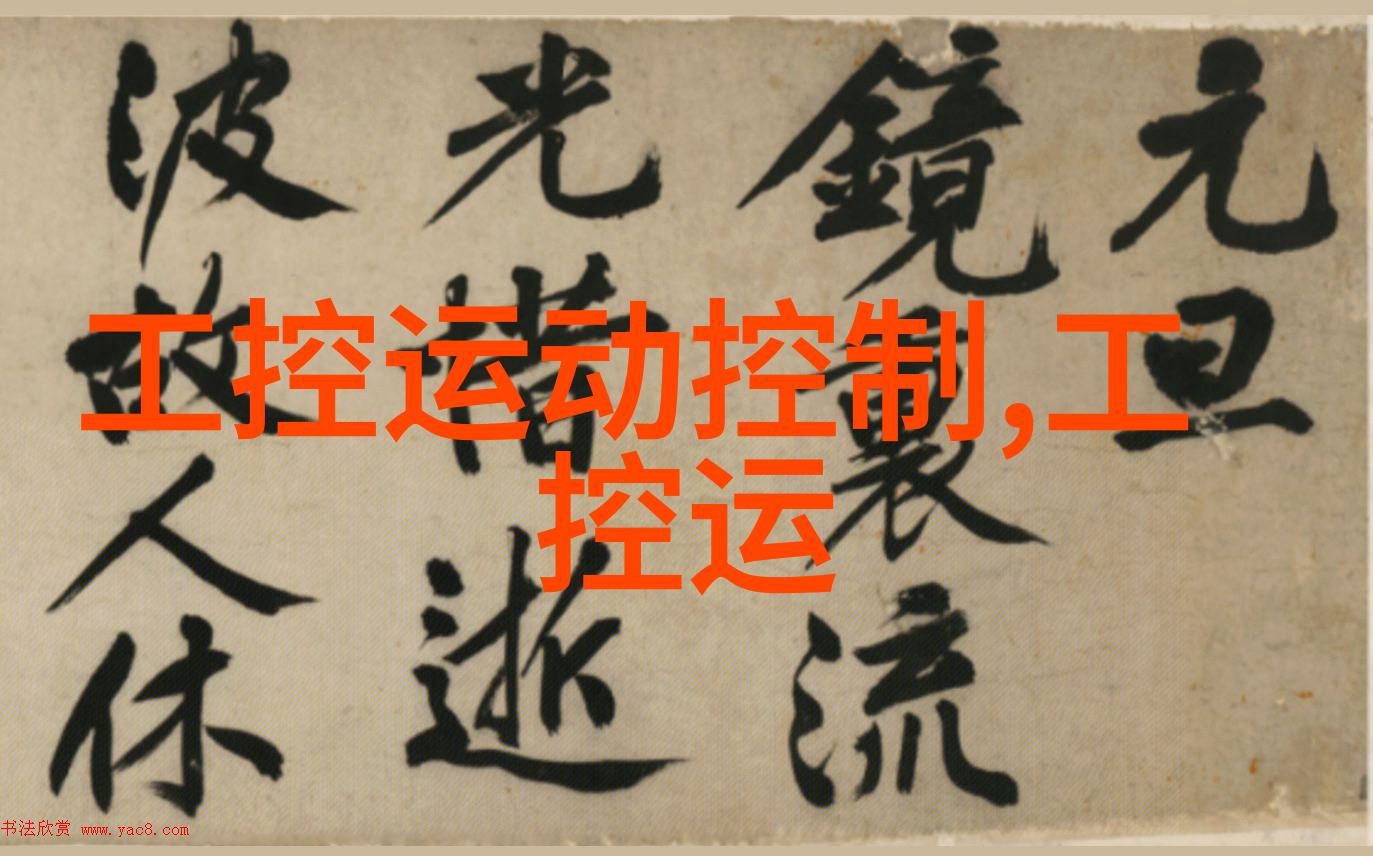 元旦
鏡裏流
光惜逝
波故人休
工控运动控制,工
控运
书法欣赏 www.yac8.com